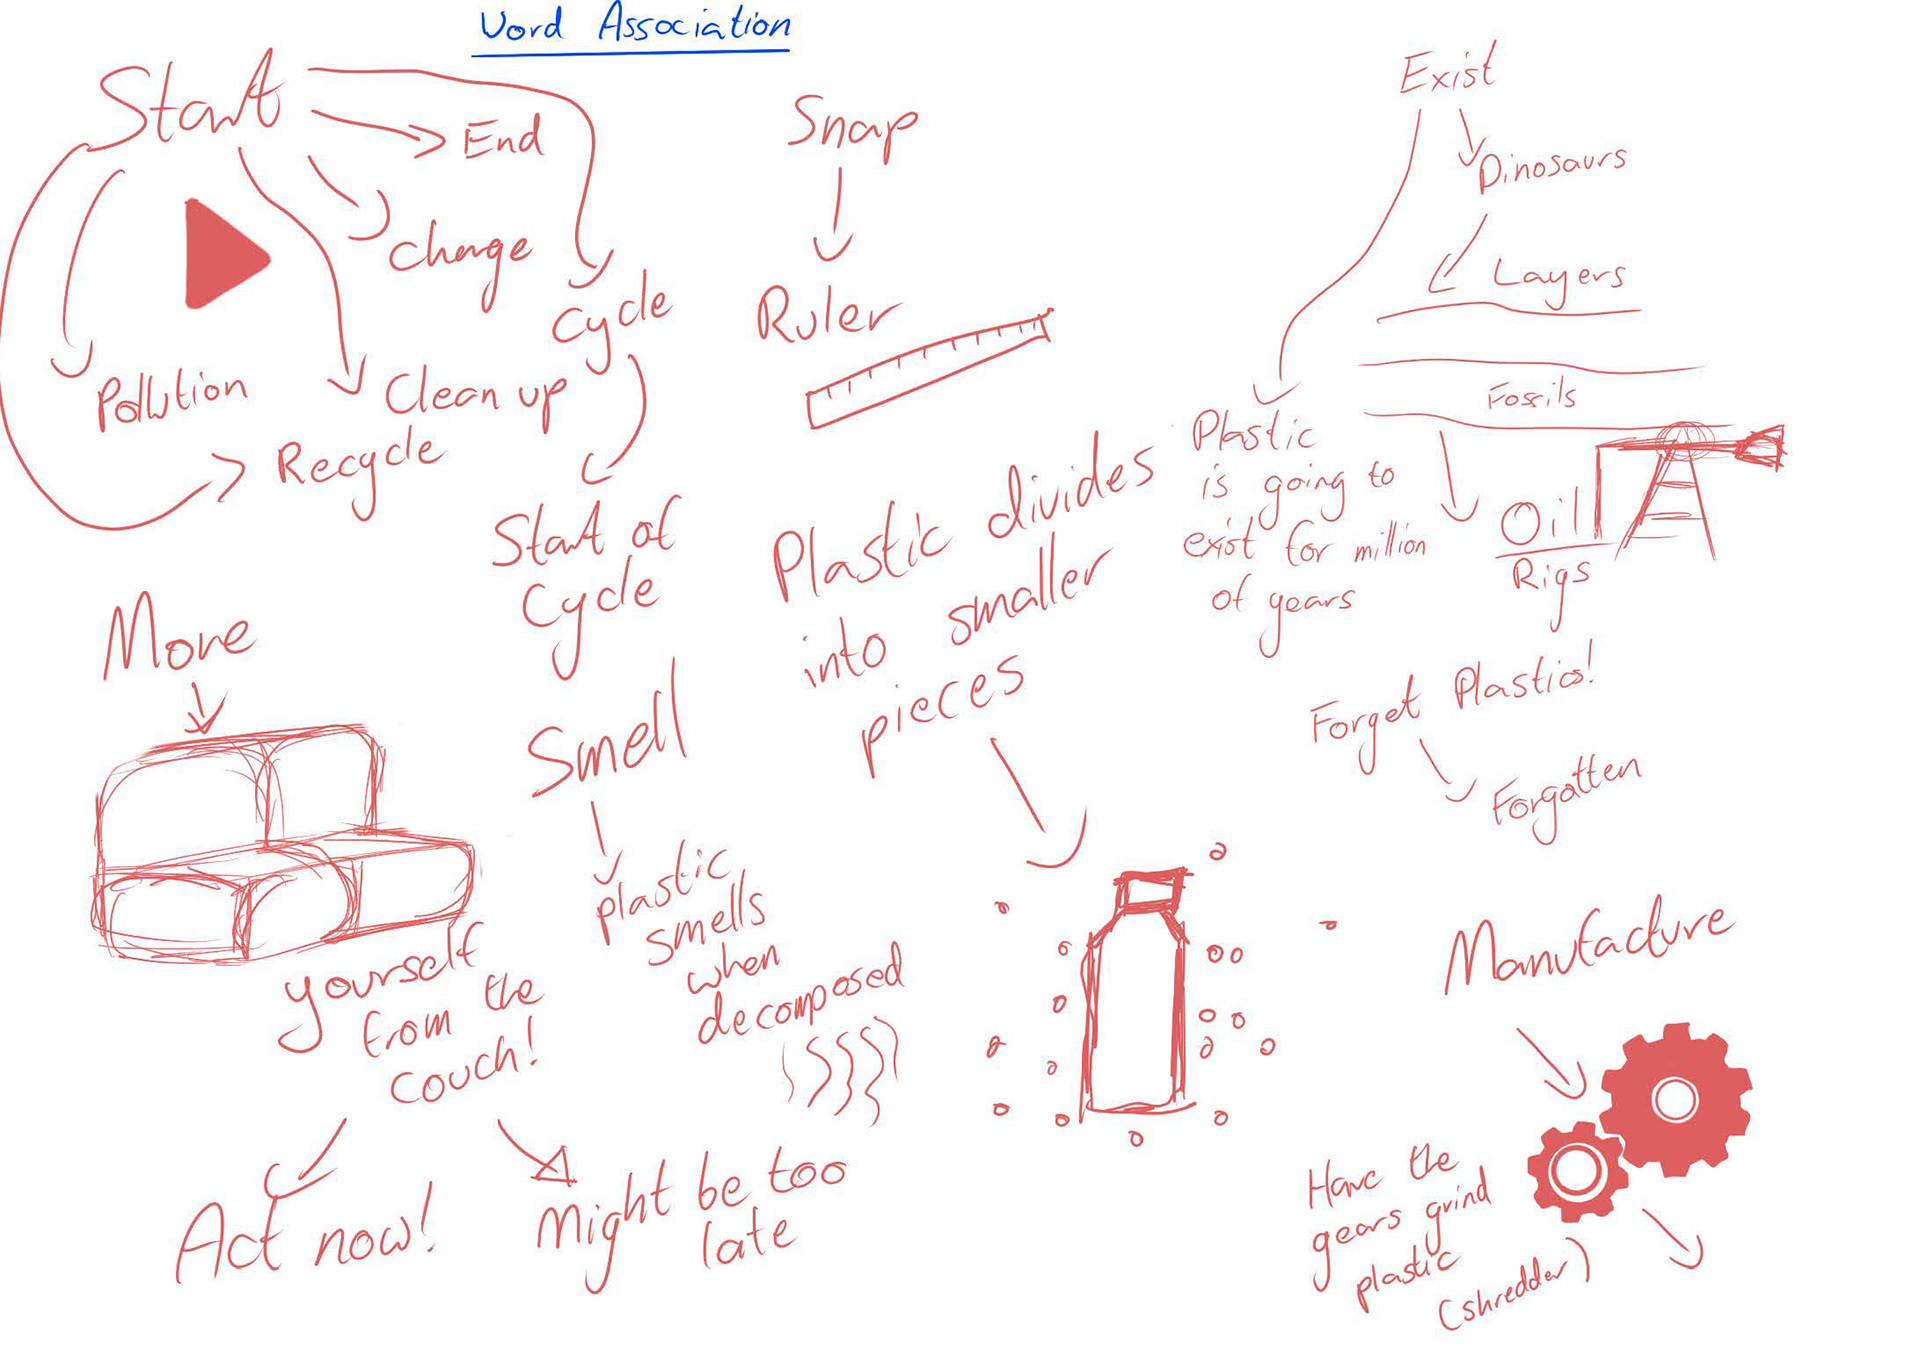 Word Association
Start
End
Change
Cycle
Pollution
Clean up
Recycle
Start of
Cycle
Snap
Ruler
Plastic divides
into smaller
pieces
Exist
Dinosaurs
Layers
Fossils
Oil
Rigs
Plastic
is going to
exist for million
of years
Forget Plastics!
Forgotten
More
yourself
from the
couch!
Act now!
Might be too
late
Smell
plastic
smells
when
decomposed
Manufacture
Have the
gears grind
plastic
(shredder)